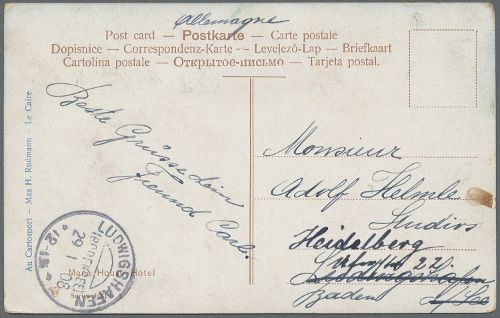 Allemagne
Post card — Postkarte — Carte postale
Dopisnice — Correspondenz-Karte — Levelező-Lap — Briefkaart
Cartolina postale — Открытое-письмо — Tarjeta postal.
Au Cartosport - Max H. Rudmann - Le Caire
Beste Grüsse dein
Freund Carl.
Monsieur
Adolf Helmle
Studios
Heidelberg
Ludwigshafen
Baden a/See
LUDWIGSHAFEN
(BODENSEE)
29 1 08
Mena House Hotel